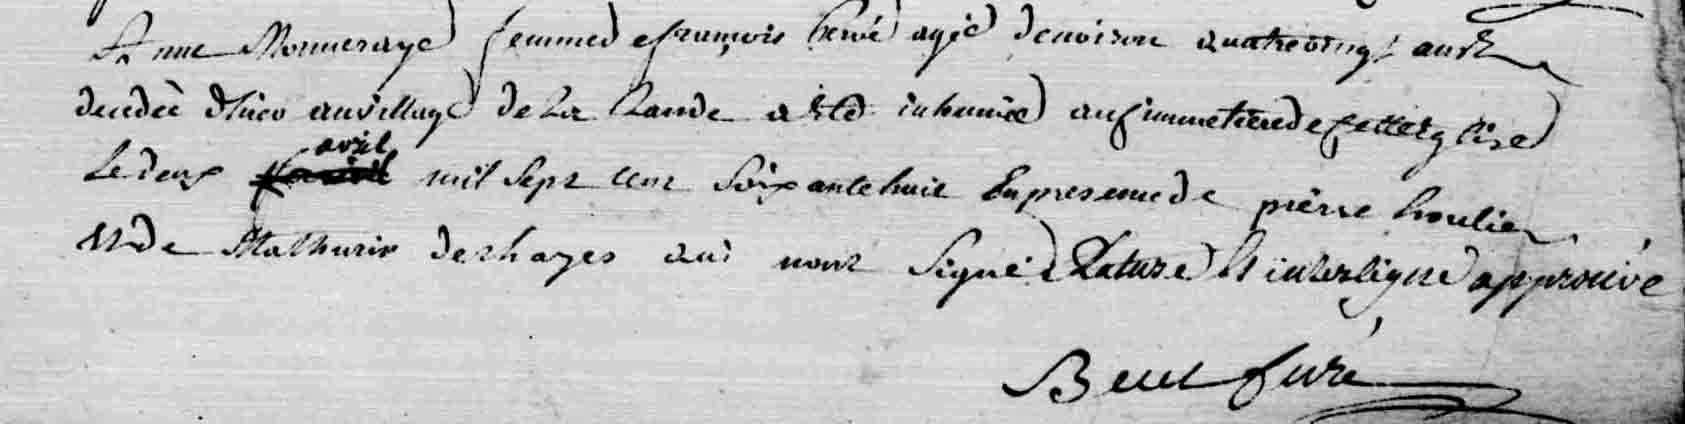 Anne Monneraye femme de françois hervé agée denviron quatre vingt ans
decedée d'hier au village de La Lande a eté inhumée au cimmetiere de cette eglise
Le deux avril mil sept cent soixante huit En presence de pierre houlier
Et de Mathurin deshayes qui n'ont signé Rature et interligne approuvé
curé